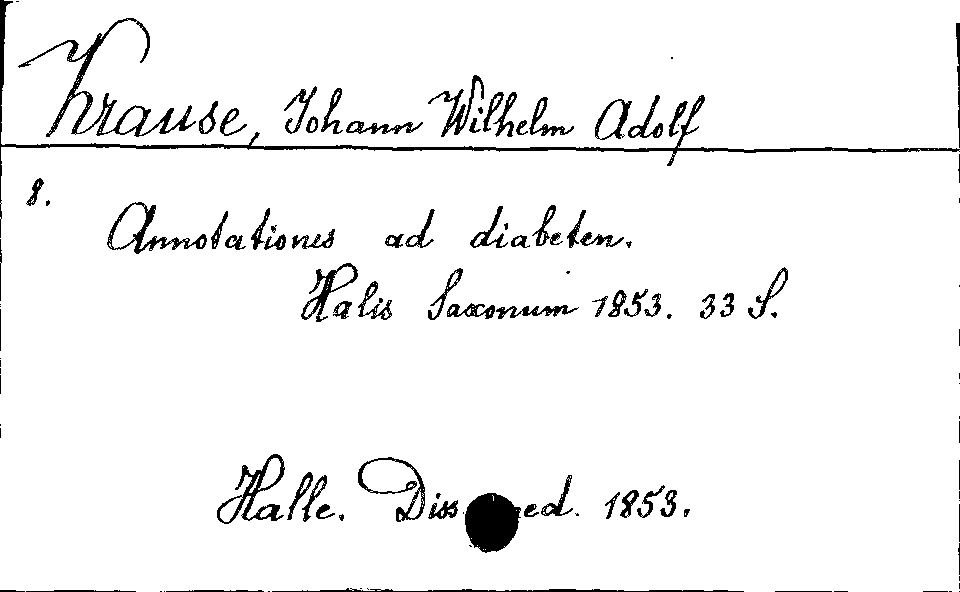 Krause, Johann Wilhelm Adolf
8.
Annotationes ad diabeten.
Halis Saxonum 1853. 33 S.
Halle. Diss. med. 1853.